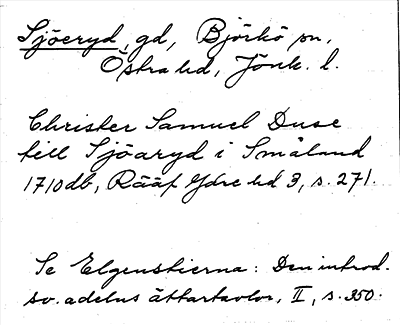 Sjöeryd, gd, Björkö sn,
Östra hd, Jönk. l.
Christer Samuel Duse
till Sjöaryd i Småland
1710 db, Rääf Ydre hd 3, s. 271.
Se Elgenstierna: Den introd.
sv. adelns ättartavlor, II, s. 350.